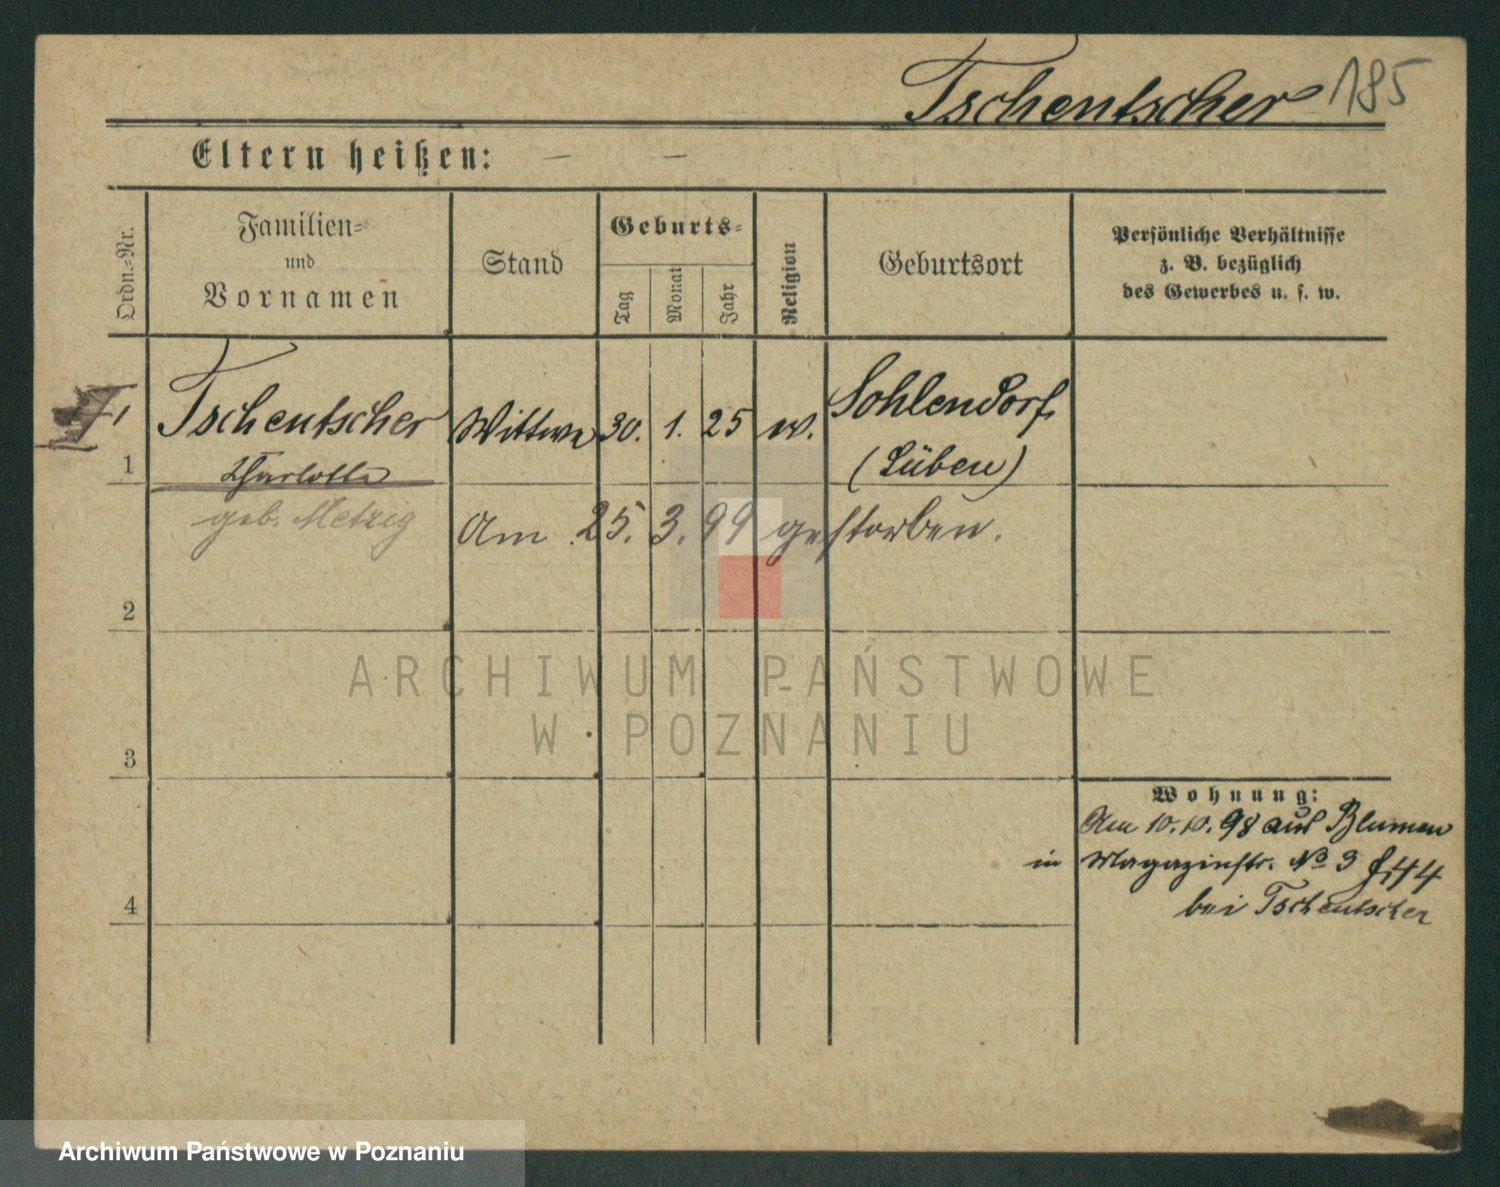 Tschentscher 185
Eltern heißen: — —
Ordn.-Nr.
Familien-
und
Vornamen
Stand
Geburts-
Tag
Monat
Jahr
Religion
Geburtsort
Persönliche Verhältnisse
z. B. bezüglich
des Gewerbes u. s. w.
1 Tschentscher Wittwe 30. 1. 25 ev. Sohlendorf
1 Charlotte (Lüben)
geb. Metzig Am 25. 3. 99 gestorben.
2
ARCHIWUM PAŃSTWOWE
W POZNANIU
3
Wohnung:
Am 10. 10. 98 aus Blumen
in Magazinstr. No 3
4
bei Tschentscher
Archiwum Państwowe w Poznaniu